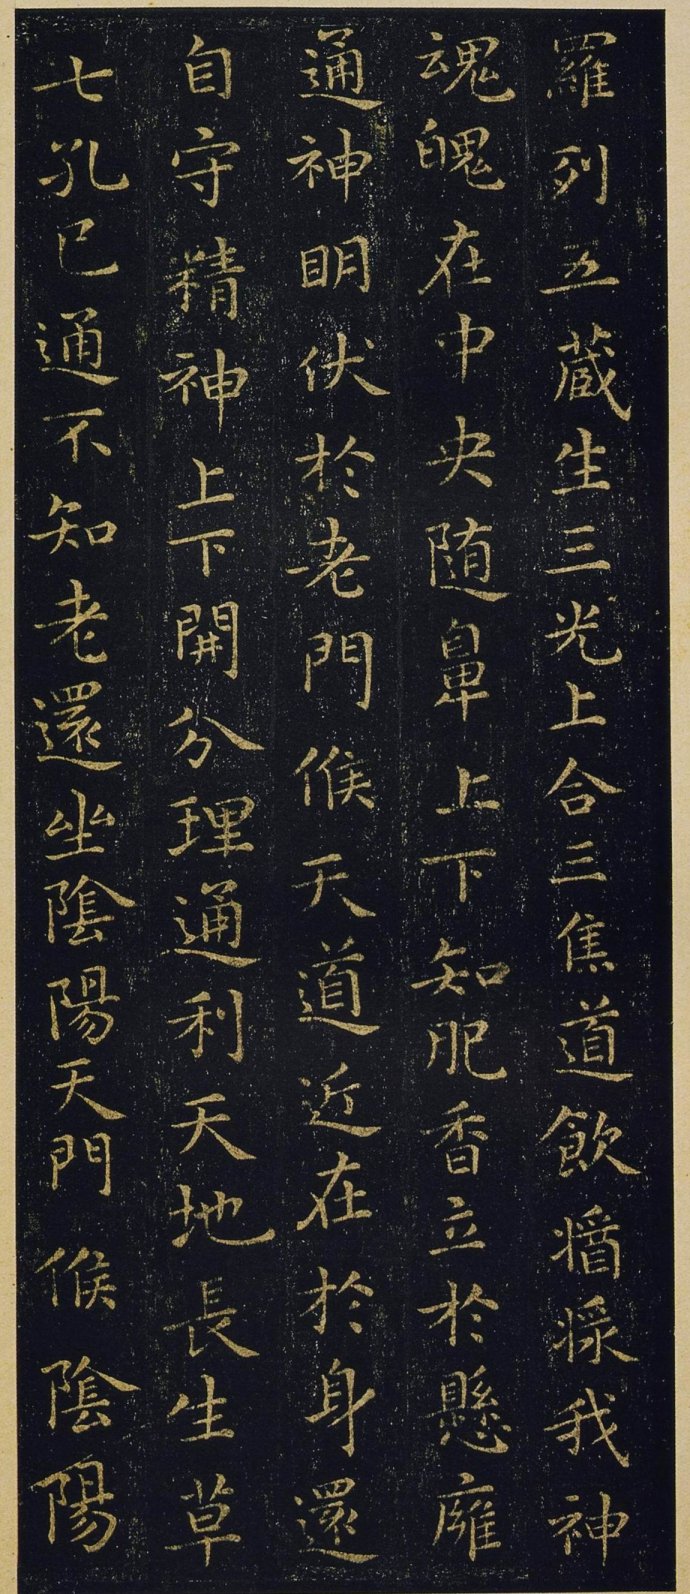 羅列五蔵生三光上合三焦道飲漿我神
魂魄在中央随鼻上下知肥香立於懸癰
通神明伏於老門候天道近在於身還
自守精神上下開分理通利天地長生草
七孔已通不知老還坐陰陽天門候陰陽